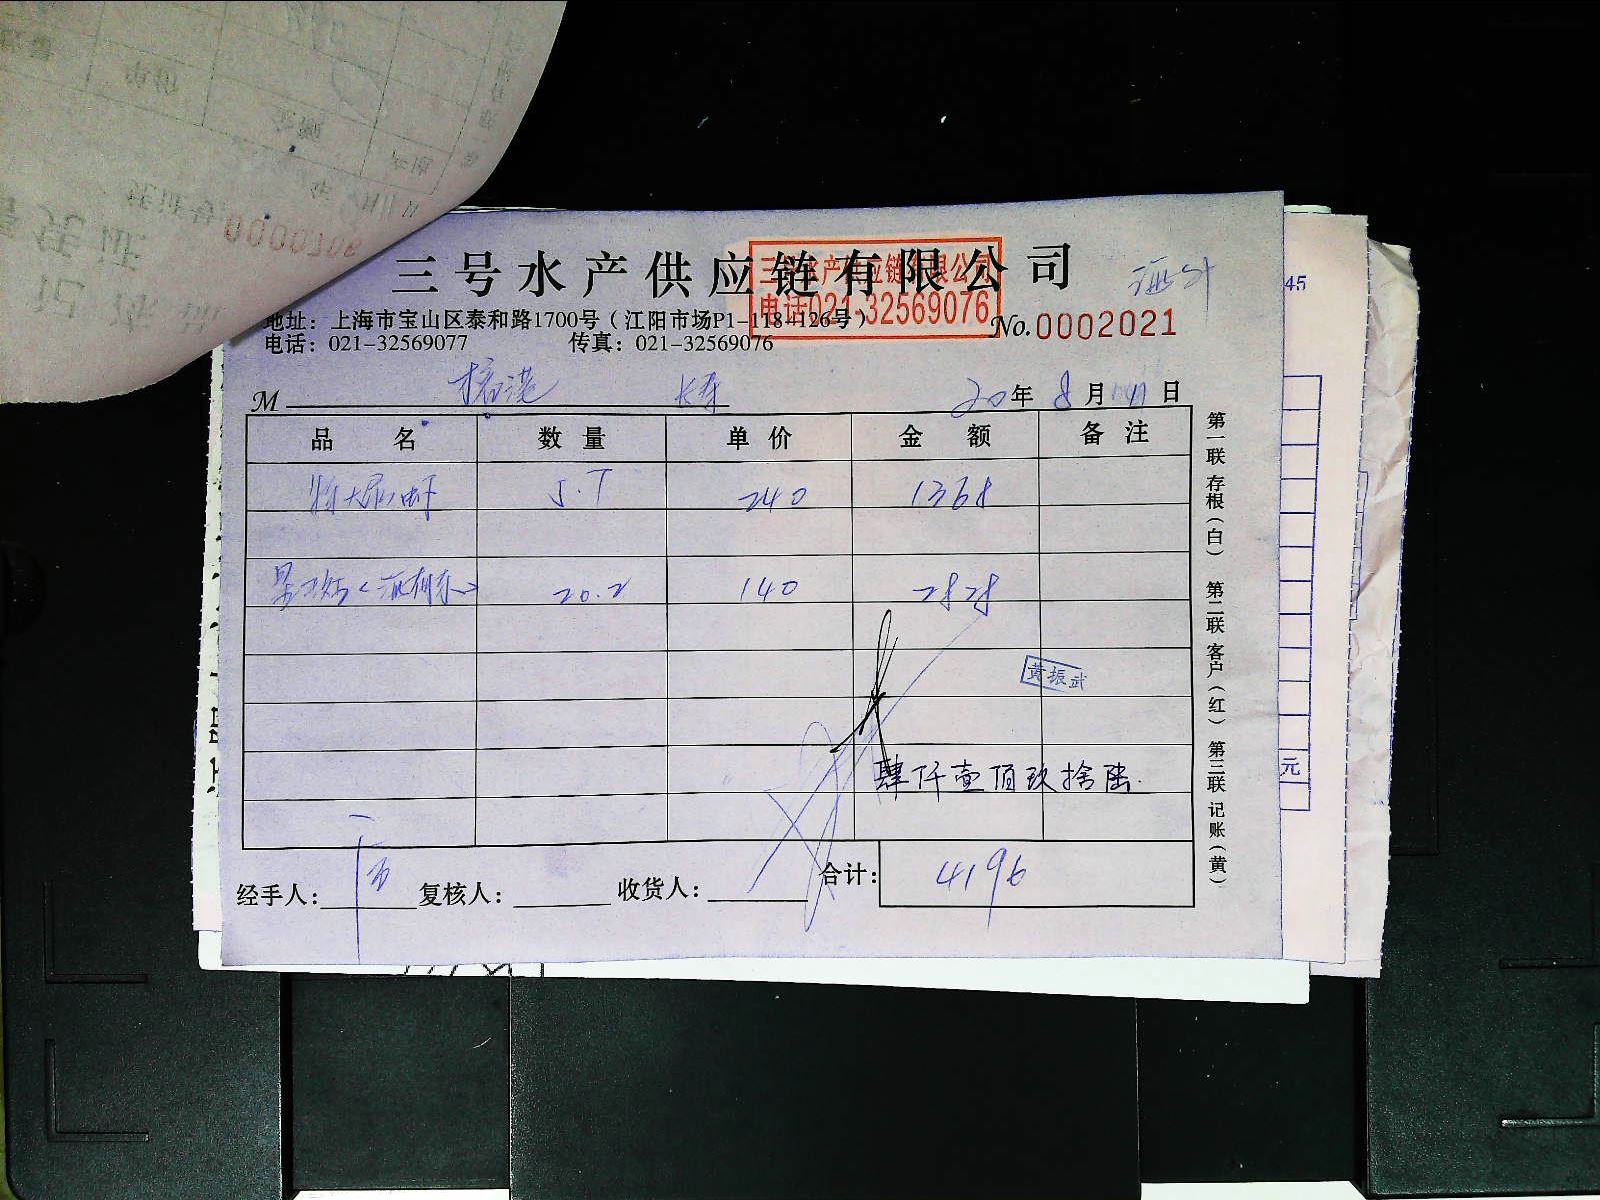 三号水产供应链有限公司
三号水产供应链有限公司
电话021-32569076
海外
地址：上海市宝山区泰和路1700号（江阳市场P1-118-126号）
No.0002021
电话：021-32569077 传真：021-32569076
M 长寿 20年 8月 日
品名 数量 单价 金额 备注
特大尿虾 5.7 240 1368
20.2 140 2828
黄振武
肆仟壹佰玖拾陆
经手人： 复核人： 收货人： 合计： 4196
第一联 存根（白） 第二联 客户（红） 第三联 记账（黄）
45
元
0000706